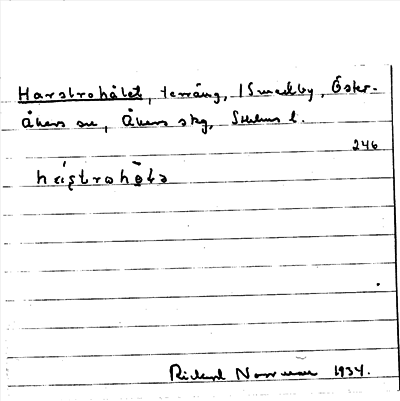 Harstrohålet, terräng, i Smedby, Öster-
åkers sn, Åkers skg, Sthlms l.
246
Richard Norrman 1934.